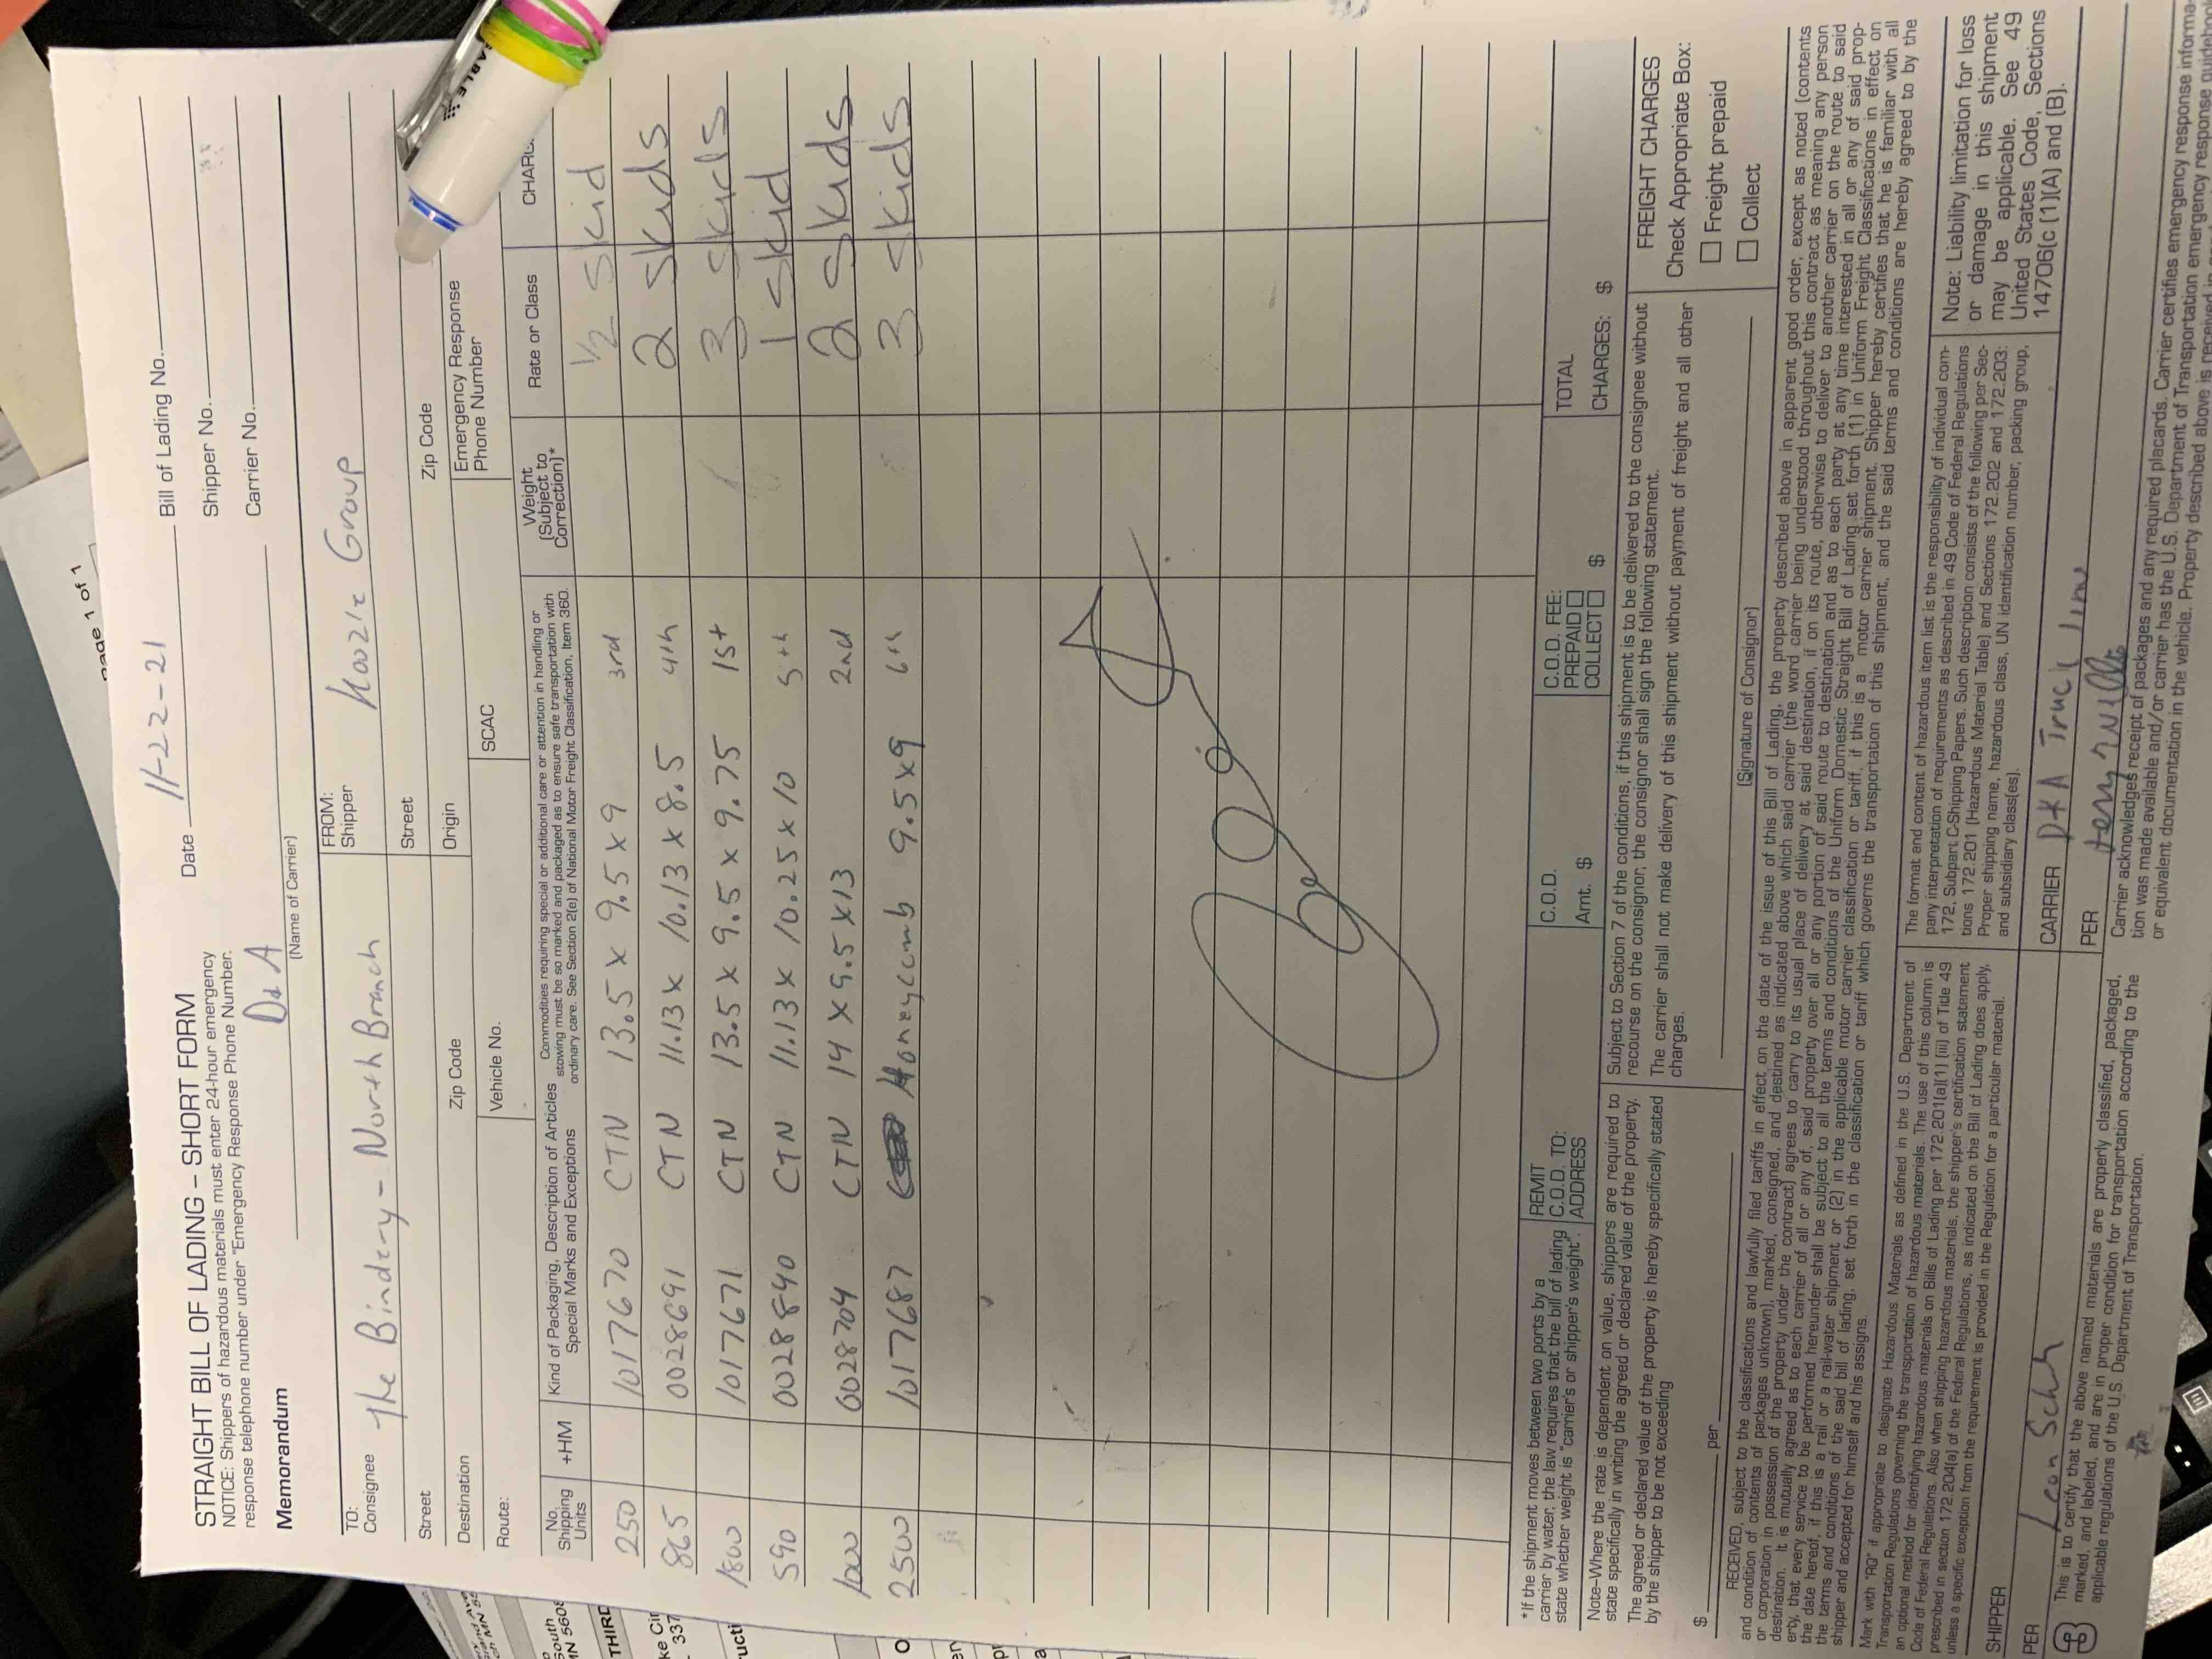 STRAIGHT BILL OF LADING – SHORT FORM
NOTICE: Shippers of hazardous materials must enter 24-hour emergency
response telephone number under "Emergency Response Phone Number."
Date 11-22-21
Bill of Lading No.
Shipper No.
Carrier No.
Memorandum
D&A
(Name of Carrier)
TO:
Consignee The Bindery - North Branch
FROM:
Shipper Koozie Group
Street
Street
Destination
Zip Code
Origin
Zip Code
Route:
Vehicle No.
SCAC
Emergency Response
Phone Number
No.
Shipping
Units
+HM
Kind of Packaging, Description of Articles
Special Marks and Exceptions
Commodities requiring special or additional care or attention in handling or
stowing must be so marked and packaged as to ensure safe transportation with
ordinary care. See Section 2(e) of National Motor Freight Classification, Item 360.
Weight
(Subject to
Correction)*
Rate or Class
250 1017670 CTN 13.5 x 9.5 x 9 3rd 1/2 Skid
865 0028691 CTN 11.13 x 10.13 x 8.5 4th 2 Skids
1800 1017671 CTN 13.5 x 9.5 x 9.75 1st 3 Skids
590 0028840 CTN 11.13 x 10.25 x 10 5th 1 Skid
1000 0028704 CTN 14 x 9.5 x 13 2nd 2 Skids
2500 1017687 Honeycomb 9.5 x 9 6th 3 Skids
*If the shipment moves between two ports by a
carrier by water, the law requires that the bill of lading
state whether weight is "carrier's or shipper's weight".
REMIT
C.O.D. TO:
ADDRESS
C.O.D.
Amt. $
C.O.D. FEE:
PREPAID
COLLECT $
TOTAL
CHARGES: $
Note–Where the rate is dependent on value, shippers are required to
state specifically in writing the agreed or declared value of the property.
The agreed or declared value of the property is hereby specifically stated
by the shipper to be not exceeding
$ per
Subject to Section 7 of the conditions, if this shipment is to be delivered to the consignee without
recourse on the consignor, the consignor shall sign the following statement.
The carrier shall not make delivery of this shipment without payment of freight and all other
charges.
(Signature of Consignor)
FREIGHT CHARGES
Check Appropriate Box:
Freight prepaid
Collect
RECEIVED, subject to the classifications and lawfully filed tariffs in effect, on the date of the issue of this Bill of Lading, the property described above in apparent good order, except as noted (contents
and condition of contents of packages unknown), marked, consigned, and destined as indicated above which said carrier (the word carrier being understood throughout this contract as meaning any person
or corporation in possession of the property under the contract) agrees to carry to its usual place of delivery at said destination, if on its route, otherwise to deliver to another carrier on the route to said
destination. It is mutually agreed as to each carrier of all or any of, said property over all or any portion of said route to destination and as to each party at any time interested in all or any of said prop-
erty, that every service to be performed hereunder shall be subject to all the terms and conditions of the Uniform Domestic Straight Bill of Lading set forth (1) in Uniform Freight Classifications in effect on
the date hereof, if this is a rail or a rail-water shipment or (2) in the applicable motor carrier classification or tariff, if this is a motor carrier shipment. Shipper hereby certifies that he is familiar with all
the terms and conditions of the said bill of lading, set forth in the classification or tariff which governs the transportation of this shipment, and the said terms and conditions are hereby agreed to by the
shipper and accepted for himself and his assigns.
Mark with "RQ" if appropriate to designate Hazardous Materials as defined in the U.S. Department of
Transportation Regulations governing the transportation of hazardous materials. The use of this column is
an optional method for identifying hazardous materials on Bills of Lading per 172.201(a)(1) (iii) of Title 49
Code of Federal Regulations. Also when shipping hazardous materials, the shipper's certification statement
prescribed in section 172.204(a) of the Federal Regulations, as indicated on the Bill of Lading does apply,
unless a specific exception from the requirement is provided in the Regulation for a particular material.
The format and content of hazardous item list is the responsibility of individual com-
pany interpretation of requirements as described in 49 Code of Federal Regulations
172, Subpart C-Shipping Papers. Such description consists of the following per Sec-
tions 172.201 (Hazardous Material Table) and Sections 172.202 and 172.203:
Proper shipping name, hazardous class, UN identification number, packing group,
and subsidiary class(es).
Note: Liability limitation for loss
or damage in this shipment
may be applicable. See 49
United States Code, Sections
14706(c (1)(A) and (B).
SHIPPER
CARRIER D&A Truck line
PER Leon
PER
This is to certify that the above named materials are properly classified, packaged,
marked, and labeled, and are in proper condition for transportation according to the
applicable regulations of the U.S. Department of Transportation.
Carrier acknowledges receipt of packages and any required placards. Carrier certifies emergency response informa-
tion was made available and/or carrier has the U.S. Department of Transportation emergency response guidebook
or equivalent documentation in the vehicle. Property described above is received in
page 1 of 1
South
MN 5608
THIRD